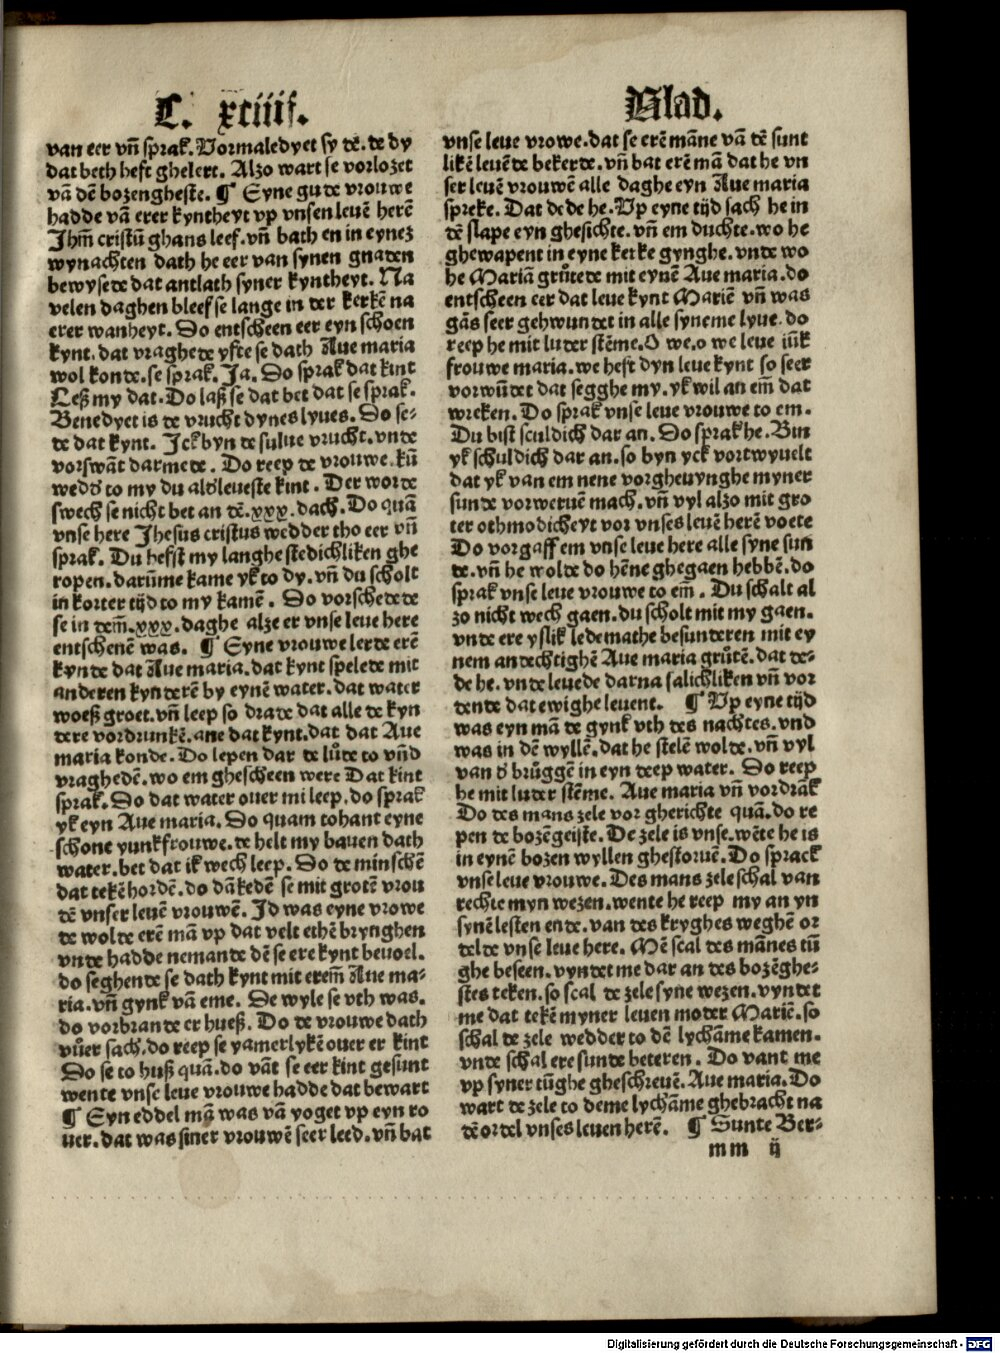 C. xciiij.
Blad.
van eer vn̄ sprak. Vormaledyet sy dē. de dy
dat beth heft ghelert. Alzo wart se vorlozet
vā dē bozengheste. ¶ Eyne gude vrouwe
hadde vā erer kyntheyt vp vnsen leuē herē
Jhm̄ cristū ghans leef. vn̄ bath en in eynez
wynachten dath he eer van synen gnaden
bewysede dat antlath syner kyntheyt. Na
velen daghen bleef se lange in der kerkē na
erer wanheyt. Do entscheen eer eyn schoen
kynt. dat vraghede yfte se dath Aue maria
wol konde. se sprak. Ja. Do sprak dat kint
Leß my dat. Do laß se dat bet dat se sprak.
Benedyet is de vrucht dynes lyues. Do se-
de dat kynt. Jck byn de sulue vrucht. vnde
vorswāt darmede. Do reep de vrouwe. kū
wedd' to my du ald'leueste kint. Der worde
swech se nicht bet an dē. xxx. dach. Do quā
vnse here Jhesus cristus wedder tho eer vn̄
sprak. Du heffst my langhe stedichliken ghe
ropen. darūme kame yk to dy. vn̄ du scholt
in korter tijd to my kamē. Do vorschedede
se in dem̄. xxx. daghe alze er vnse leue here
entschenē was. ¶ Eyne vrouwe lerde erē
kynde dat Aue maria. dat kynt spelede mit
anderen kynderē by eynē water. dat water
woeß groet. vn̄ leep so drade dat alle de kyn
dere vordrunkē. ane dat kynt. dat dat Aue
maria konde. Do lepen dar de lu̇de to vn̄d
vraghedē. wo em ghescheen were Dat kint
sprak. Do dat water ouer mi leep. do sprak
yk eyn Aue maria. Do quam tohant eyne
schone yunkfrouwe. de helt my bauen dath
water. bet dat ik wech leep. Do de minschē
dat tekē hordē. do dākedē se mit grotē vrou
dē vnser leuē vrouwē. Jd was eyne vrowe
de wolde erē mā vp dat velt ethē brynghen
vnde hadde nemande dē se ere kynt beuoel.
do seghende se dath kynt mit erem̄ Aue ma-
ria. vn̄ gynk vā eme. De wyle se vth was.
do vorbrande er hueß. Do de vrouwe dath
vu̇er sach. do reep se yamerlykē ouer er kint
Do se to huß quā. do vāt se eer kint gesunt
wente vnse leue vrouwe hadde dat bewart
¶ Eyn eddel mā was vā yoget vp eyn ro
uer. dat was siner vrouwē seer leed. vn̄ bat
vnse leue vrowe. dat se erē māne vā dē sunt
likē leuēde bekerde. vn̄ bat erē mā dat he vn
ser leuē vrouwē alle daghe eyn Aue maria
spreke. Dat dede he. Vp eyne tijd sach he in
dē slape eyn ghesichte. vn̄ em duchte. wo he
ghewapent in eyne kerke gynghe. vnde wo
he Mariā gru̇tede mit eynē Aue maria. do
entscheen eer dat leue kynt Mariē vn̄ was
gās seer gehwundet in alle syneme lyue. do
reep he mit luder stēme. O we. o we leue iūk
frouwe maria. we heft dyn leue kynt so seer
vorwūdet dat segghe my. yk wil an em̄ dat
wreken. Do sprak vnse leue vrouwe to em.
Du bist sculdich dar an. Do sprak he. Bin
yk schuldich dar an. so byn yck vortwyuelt
dat yk van em nene vorgheuynghe myner
sunde vorweruē mach. vn̄ vyl alzo mit gro
ter othmodicheyt vor vnses leuē herē voete
Do vorgaff em vnse leue here alle syne sun
de. vn̄ he wolde do hēne ghegaen hebbē. do
sprak vnse leue vrouwe to em̄. Du schalt al
zo nicht wech gaen. du scholt mit my gaen.
vnde ere yslik ledemathe besunderen mit ey
nem andechtighē Aue maria gru̇tē. dat de-
de he. vnde leuede darna salichliken vn̄ vor
dende dat ewighe leuent. ¶ Vp eyne tijd
was eyn mā de gynk vth des nachtes. vnd
was in dē wyllē. dat he stelē wolde. vn̄ vyl
van d' bru̇ggē in eyn deep water. Do reep
he mit luder stēme. Aue maria vn̄ vordrāk
Do des mans zele vor gherichte quā. do re
pen de bozēgeiste. De zele is vnse. wēte he is
in eynē bozen wyllen ghestoruē. Do sprack
vnse leue vrouwe. Des mans zele schal van
rechte myn wezen. wente he reep my an yn
synē lesten ende. van des kryghes weghē or
delde vnse leue here. Mē scal des mānes tū
ghe beseen. vyndet me dar an des bozēghe-
stes teken. so scal de zele syne wezen. vyndet
me dat tekē myner leuen moder Mariē. so
schal de zele wedder to dē lychāme kamen.
vnde schal ere sunde beteren. Do vant me
vp syner tūghe gheschreuē. Aue maria. Do
wart de zele to deme lychāme ghebracht na
dē ordel vnses leuen herē. ¶ Sunte Ber-
mm ij
Digitalisierung gefördert durch die Deutsche Forschungsgemeinschaft - DFG